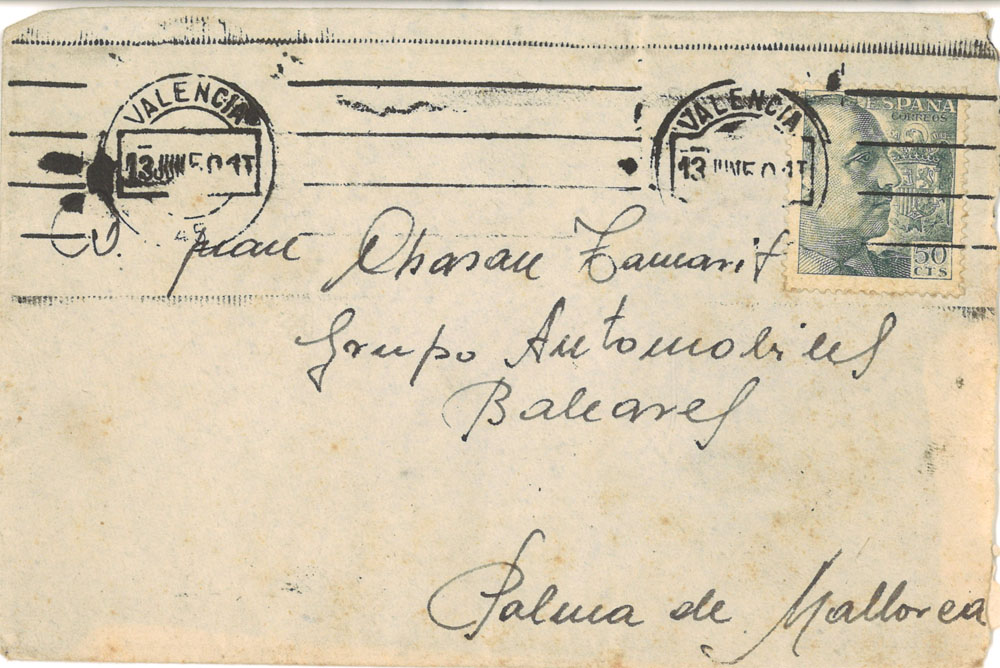 VALENCIA
13 JUN 50 1T
VALENCIA
13 JUN 50 1T
ESPAÑA
CORREOS
50
CTS
D. Juan Chasan Tamarit
Grupo Automobiles
Baleares
Palma de Mallorca